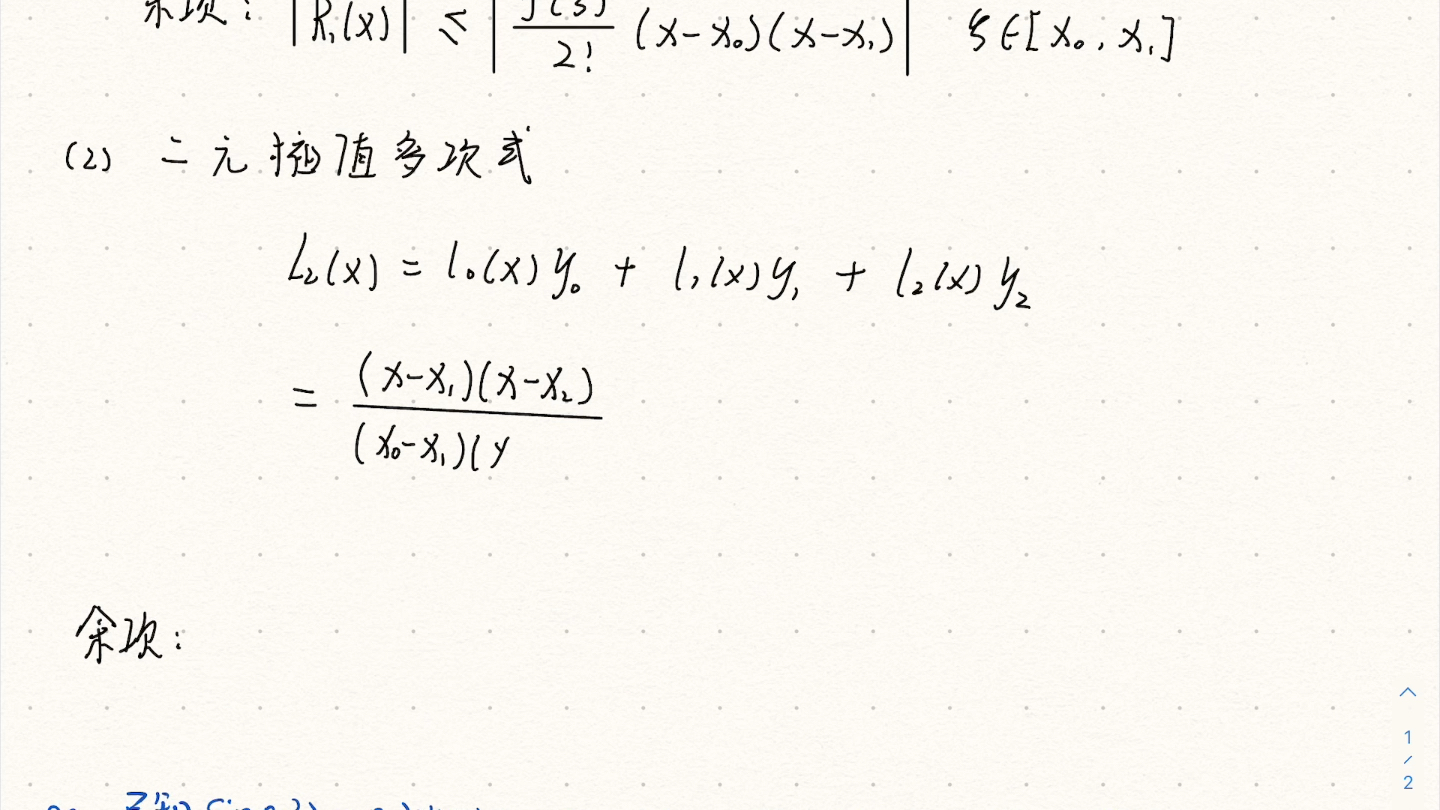 余项: |R₁(x)| ≤ |f(ξ)/2! (x-x₀)(x-x₁)| ξ∈[x₀, x₁]
(2) 二元插值多项式
L₂(x) = l₀(x)y₀ + l₁(x)y₁ + l₂(x)y₂
= (x-x₁)(x-x₂)
(x₀-x₁)(x
余项:
1
/
2